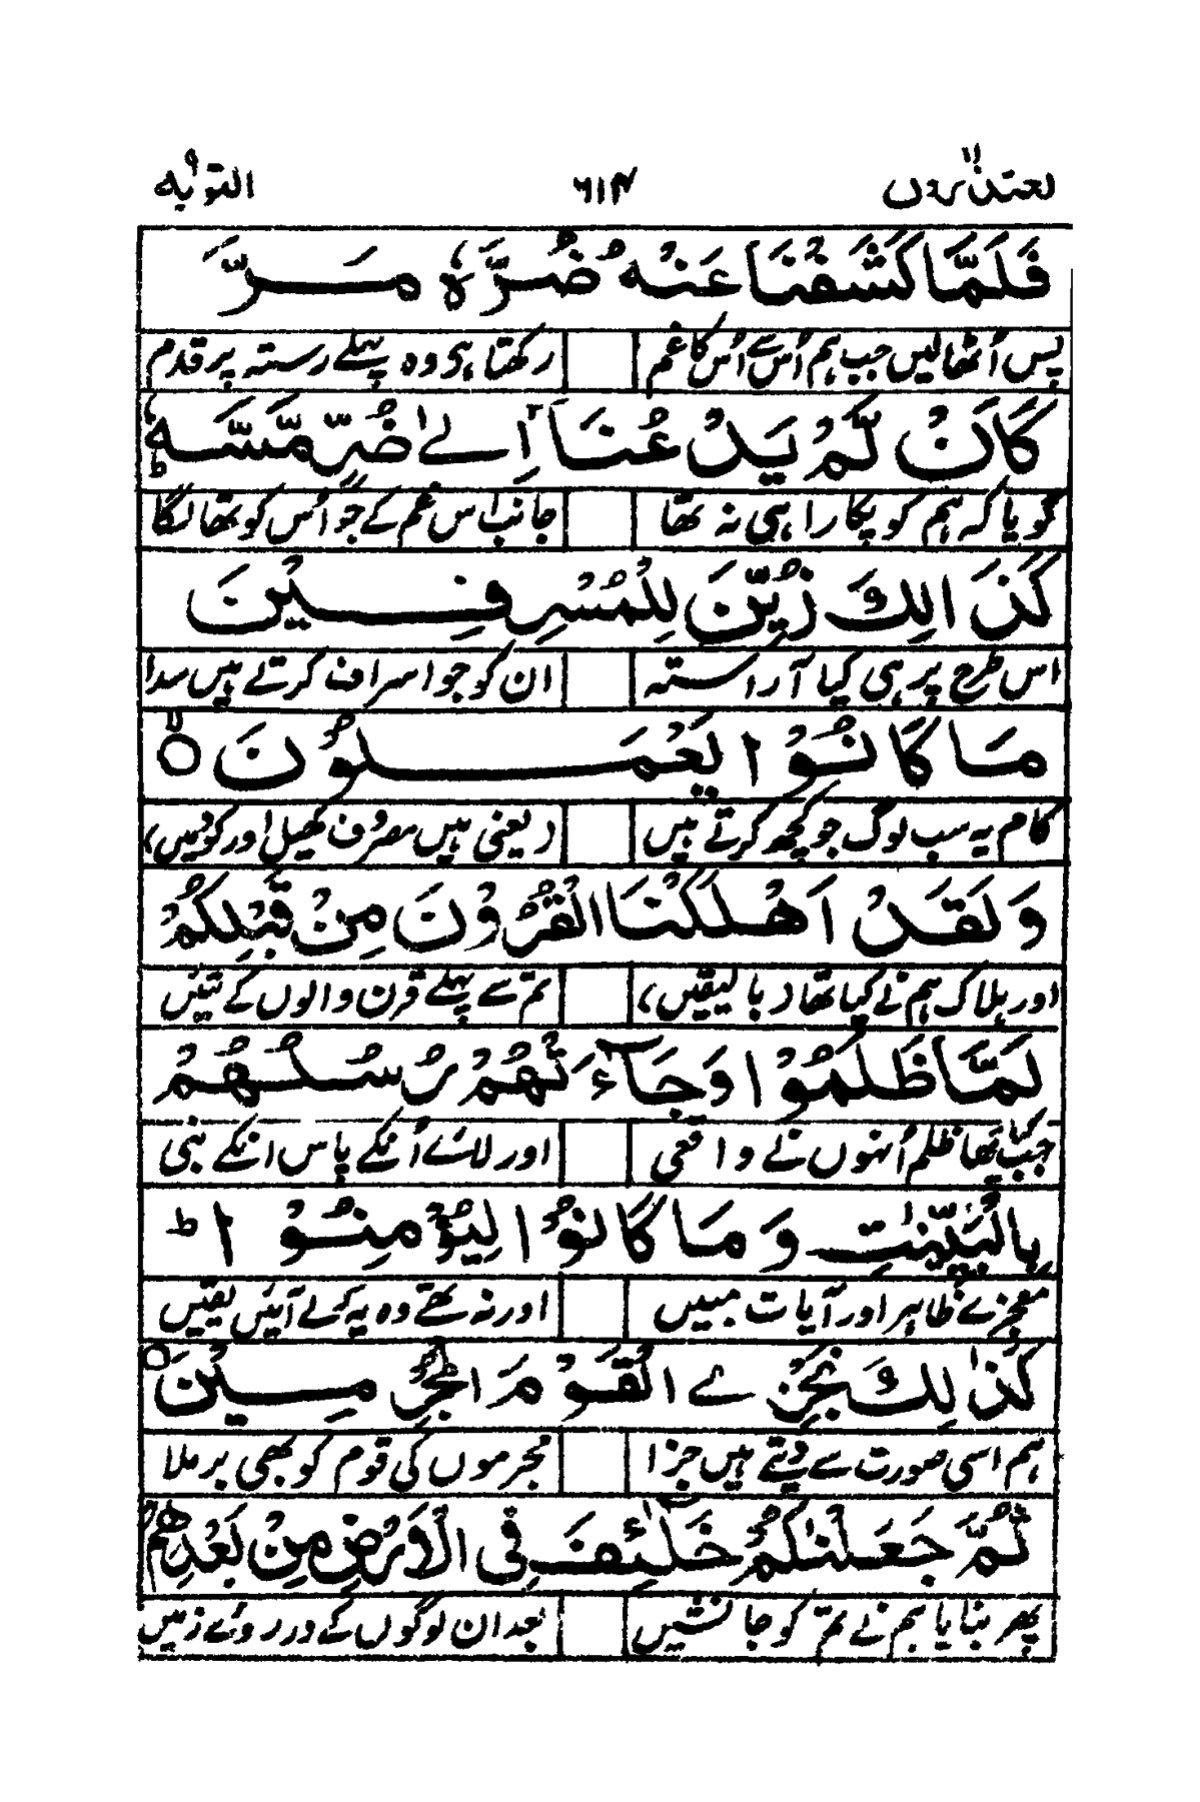 یعتذرون ۱۱ ۶۱۴ التوبه ۹
فَلَمَّا كَشَفْنَا عَنْهُ ضُرَّهٗ مَرَّ
پس اُٹھالیں جب ہم اُس سے اُس کا غم رکھتا ہی وہ پہلے رستہ پر قدم
كَاَنْ لَّمْ يَدْعُنَآ اِلٰے ضُرٍّ مَّسَّهٗ ؕ
گویا کہ ہم کو پکارا ہی نہ تھا جانب اس غم کے جو اُس کو تھا لگا
كَذَالِكَ زُيِّنَ لِلْمُسْرِفِيْنَ
اس طرح پر ہی کیا آراستہ ان کو جو اسراف کرتے ہیں سدا
مَا كَانُوْا يَعْمَلُوْنَ ○
کام یہ سب لوگ جو کچھ کرتے ہیں (یعنی ہیں مصروف کھیل اور کود میں)
وَلَقَدْ اَهْلَكْنَا الْقُرُوْنَ مِنْ قَبْلِكُمْ
اور ہلاک ہم نے کیا تھا (بالیقیں) تم سے پہلے قرن والوں کے تئیں
لَمَّا ظَلَمُوْا وَجَآءَتْهُمْ رُسُلُهُمْ
جب کیا تھا ظلم اُنہوں نے واقعی اور لائے اُنکے پاس انکے نبی
بِالْبَيِّنٰتِ وَمَا كَانُوْا لِيُؤْمِنُوْا ؕ
معجزے ظاہر اور آیات مبیں اور نہ تھے وہ یہ کہ لے آئیں یقیں
كَذٰلِكَ نَجْزِے الْقَوْمَ الْمُجْرِمِيْنَ ○
ہم اسی صورت سے دیتے ہیں جزا مجرموں کی قوم کو بھی برملا
ثُمَّ جَعَلْنٰكُمْ خَلٰٓئِفَ فِى الْاَرْضِ مِنْ بَعْدِهِمْ
پھر بنایا ہم نے تم کو جانشیں بعد ان لوگوں کے در روئے زمیں